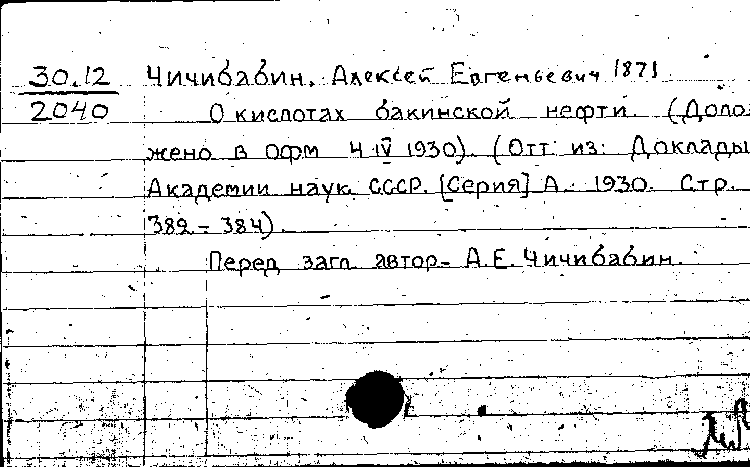 30.12 Чичибабин, Алексей Евгеньевич 1871
2040 О кислотах бакинской нефти. (Доло-
жено в ОФМ 4 IV 1930). (Отт. из: Доклады
Академии наук СССР. [Серия] А. 1930. Стр.
382 - 384).
Перед загл. автор- А.Е. Чичибабин.